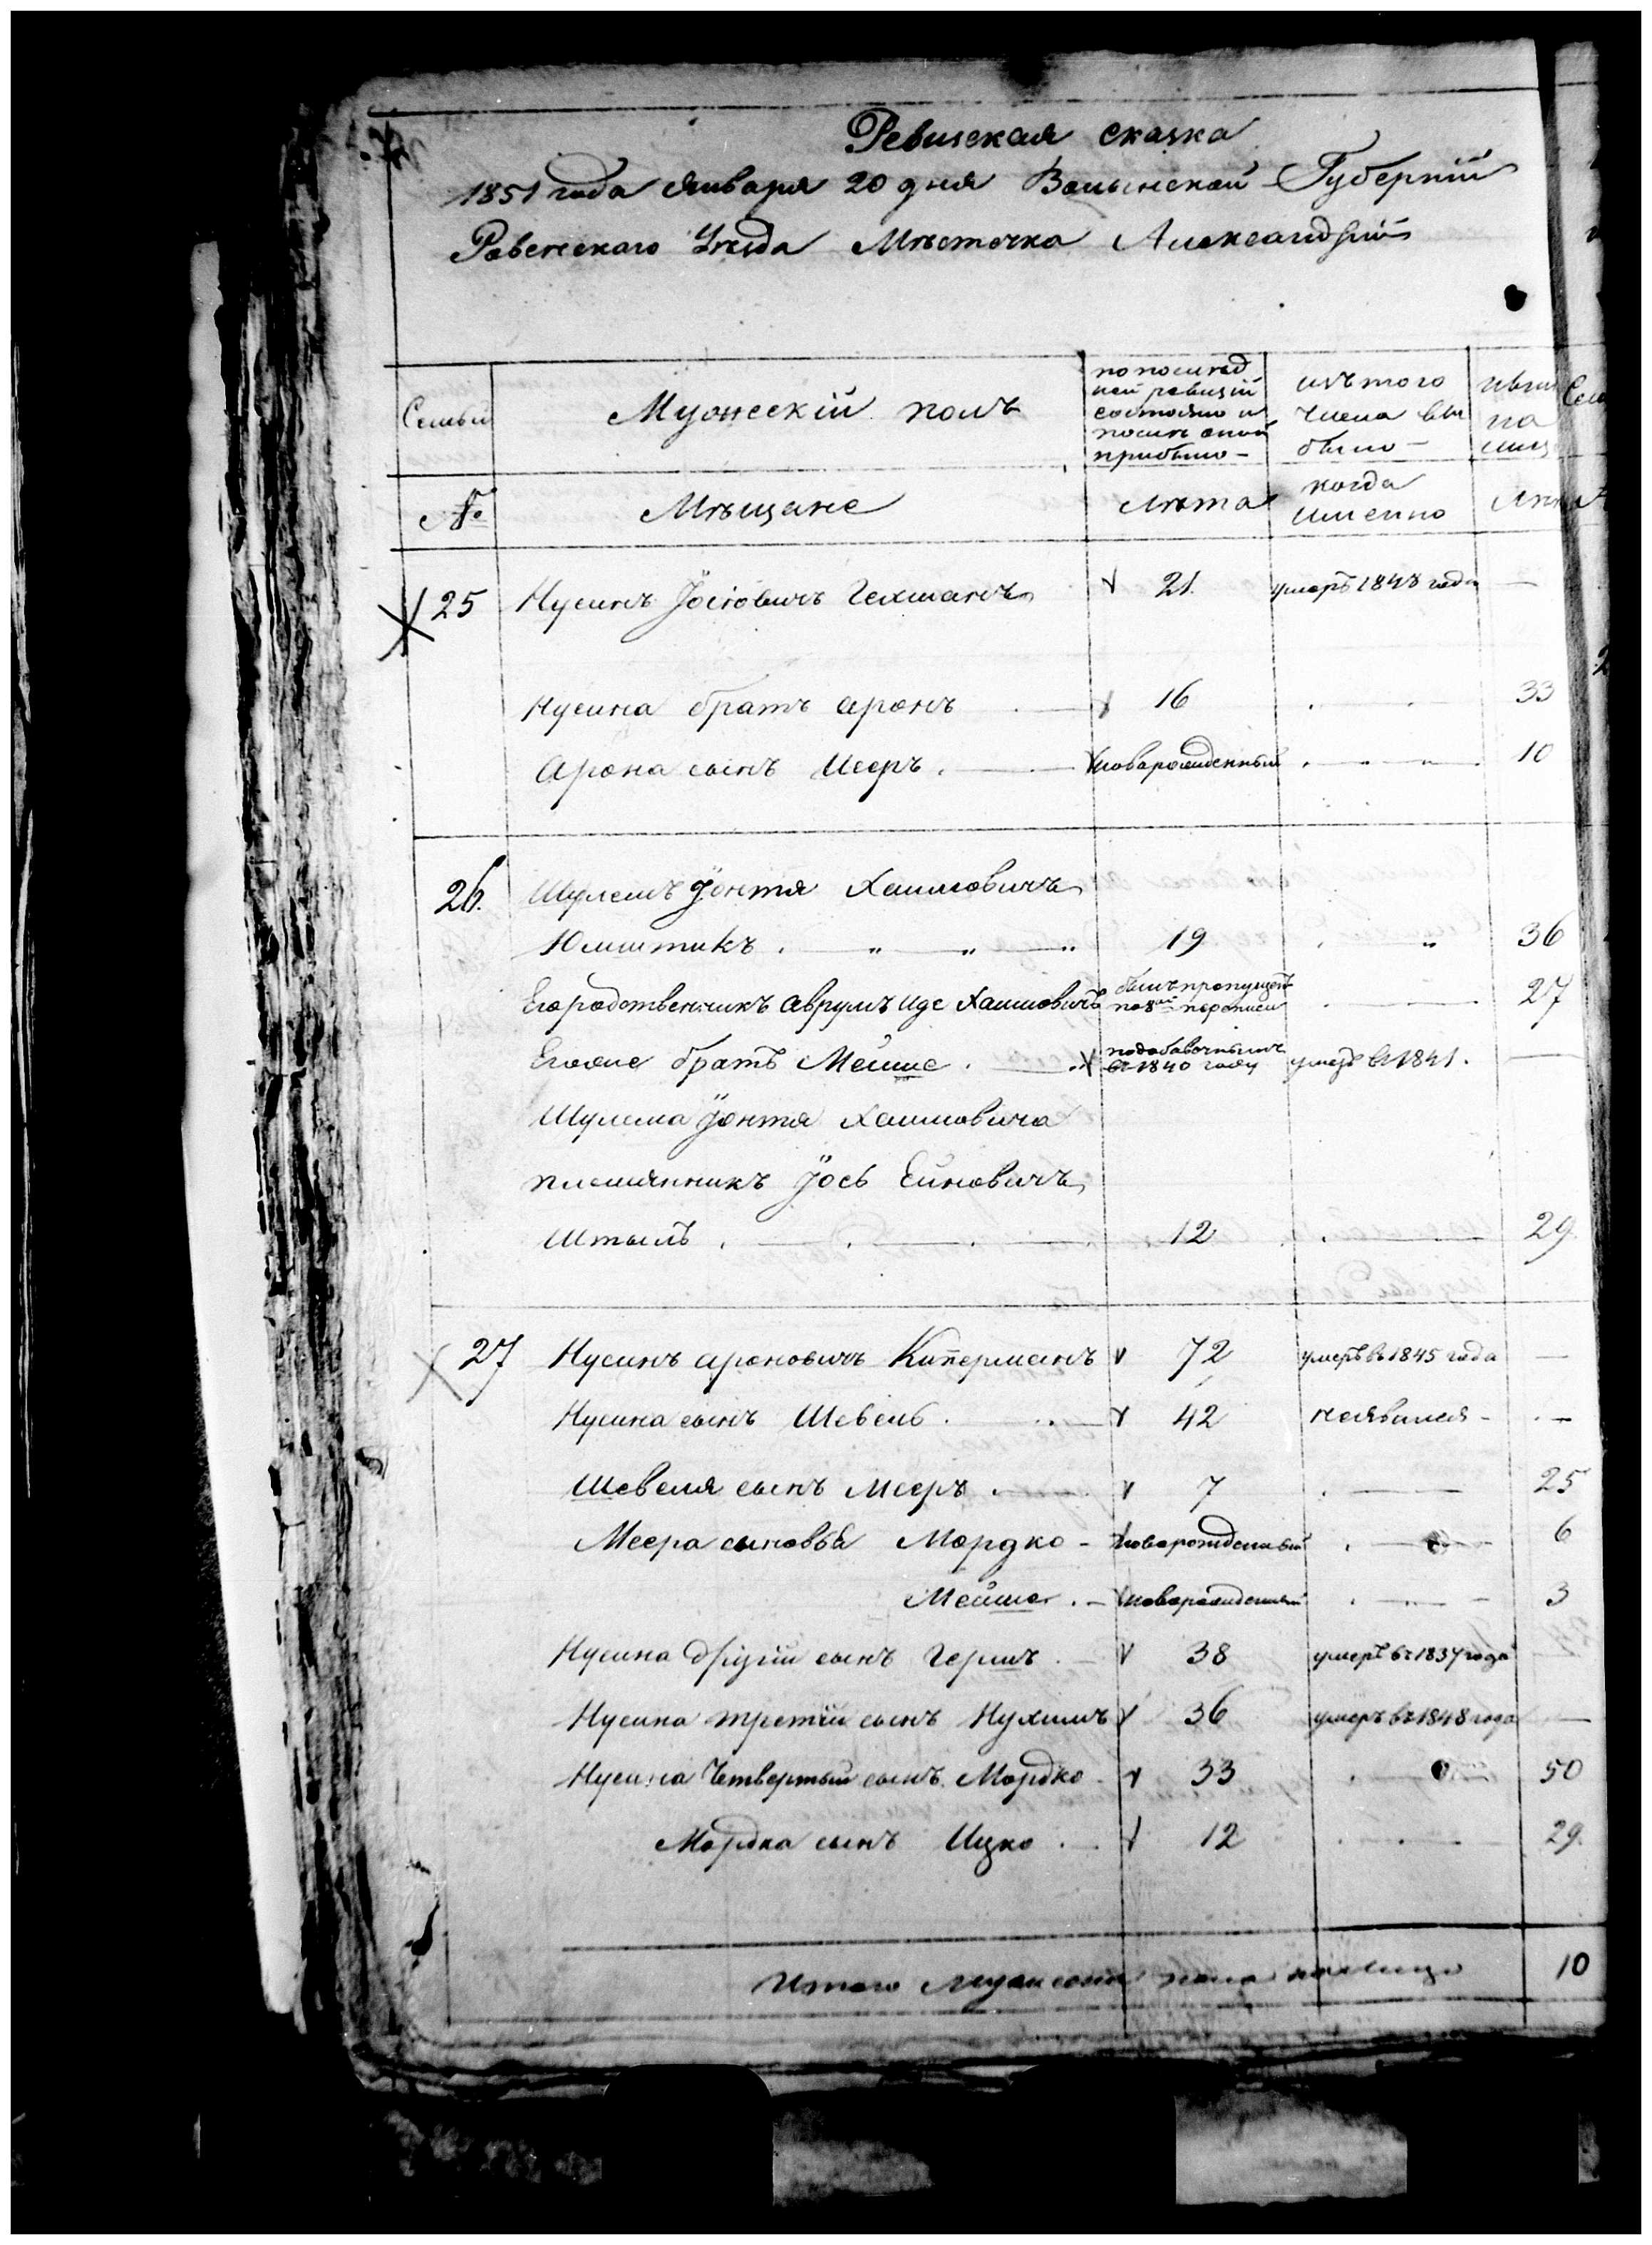 Ревизская сказка
1851 года Января 20 дня Волынской Губерніи
Ровенскаго Уѣзда Мѣстечка Александріи
Семьи
Мужескій полъ
по послѣд
ней ревизіи
состояло и
послѣ оной
прибыло
изъ того
числа вы
было
на
№
Мѣщане
Лѣта
когда
именно
25 Нусинъ Іосіовичъ Гехманъ 21 умеръ 1848 года —
Нусина братъ Аронъ 16 33
Арона сынъ Мееръ новорожденный 10
26. Шулемъ Іонтя Хаимовичъ
Юмштикъ 19 36
Его родственникъ Аврумъ Иде Хаимовичъ былъ пропущенъ по 8й переписи 27
Егоже братъ Мейше подобавочнымъ въ 1840 году умеръ въ 1841. —
Шулема Іонтя Хаимовича
племянникъ Іось Ейновичъ
Штыль 12 29
27 Нусинъ Ароновичъ Киперманъ 72 умеръ въ 1845 года —
Нусина сынъ Шевель 42 неявился —
Шевеля сынъ Мееръ 7 25
Меера сыновья Мордко новорожденный 6
Мейше новорожденный 3
Нусина другій сынъ Гершъ 38 умеръ въ 1837 года —
Нусина третій сынъ Нухимъ 36 умеръ въ 1848 года —
Нусина Четвертый сынъ Мордко 33 50
Мордка сынъ Ицко 12 29.
Итого мужеска пола налицо 10